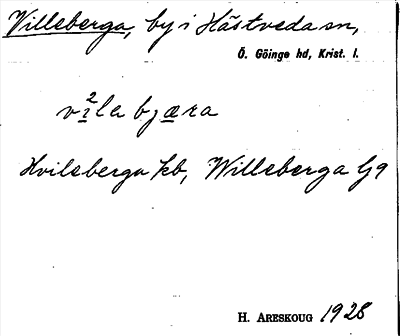 Villeberga, by i Hästveda sn,
Ö. Göinge hd, Krist. l.
v2ila bjæra
Hvileberga kb, Willeberga
H. ARESKOUG 1928